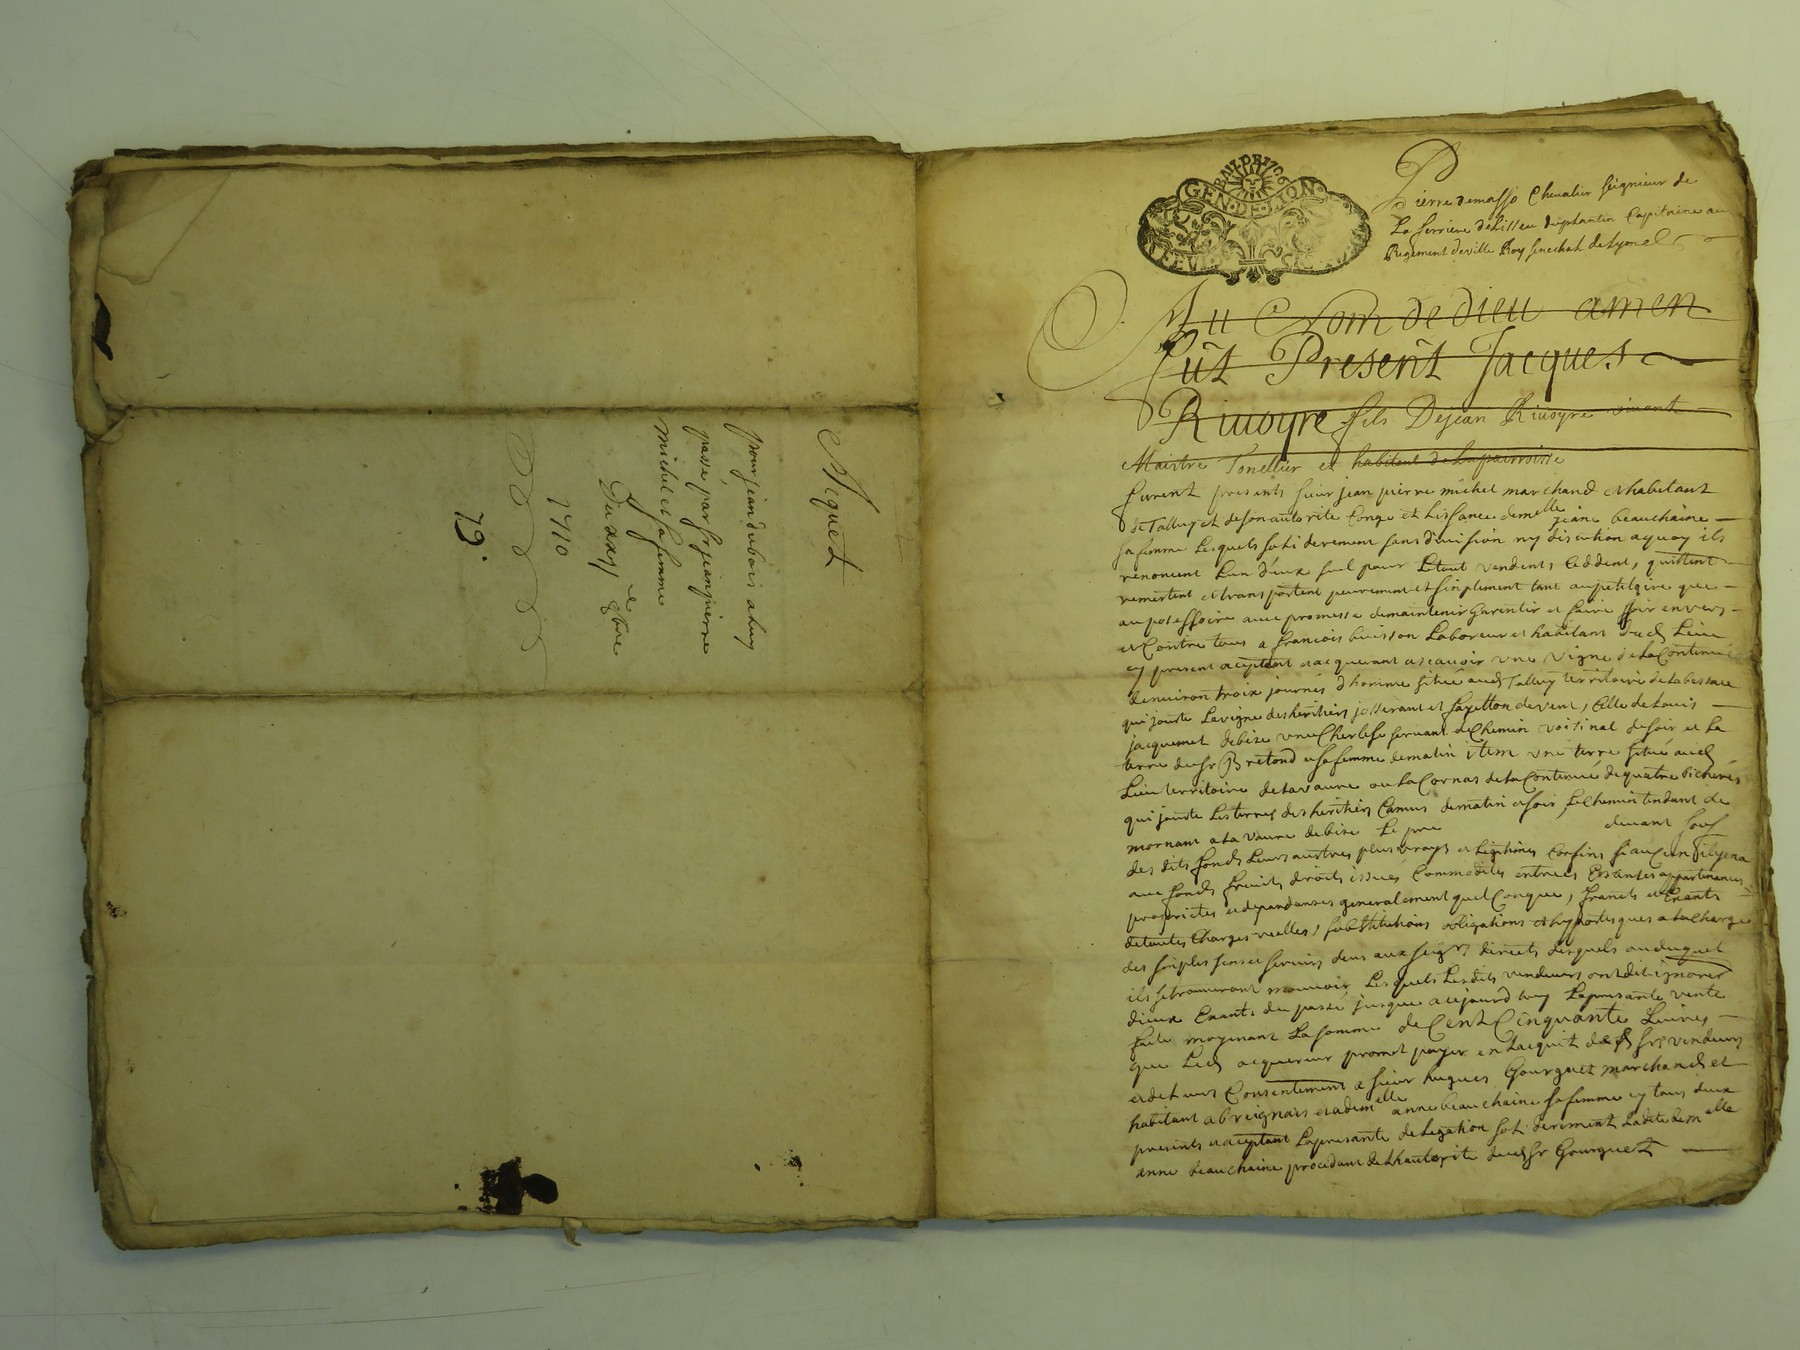 Acquet
pour jean dubois a luy
passé par sr jean pierre
michel et sa femme
Du xxxe 8bre
1710
19.
BAIL DE 1706
GEN · DE · LION
Pierre demasso Chevalier seigneur de
La ferriere de Lissieu du plantin Capitaine au
Regiment de ville Roy senechal de Lyon
Au Nom de dieu amen
fût Present Jacques
Riuoyre fils Dejean Riuoyre vivant
Maistre Tonellier et habitant de la parroisse
furent presents sieur jean pierre michel marchand et habitant
de Talluy et de son autorite Conge et Lissance demelle jeane beauchaine
sa femme Lesquels soliderement sans division ny discution a quoy ils
renoncent Lun deux seul pour Letout vendent, Ceddent, quittent
remettent et transportent purement et simplement tant au petitoire que
au posessoire avec promesse de maintenir Garentir et faire jouir envers
et Contre tous a francois buisson Laboreur et habitant dud Lieu
cy present aceptant et acquerant a scavoir une vigne de la Continue
denviron troix journés dhomme située aud Talluy territoire de la bessaee
qui jouste La vigne des heritiers josserant et fayetton de vent, Celle de Louis
jacquemet de bize une Cherlese servant de Chemin voisinal de soir et la
terre du sr Bretond et sa femme de matin item une terre située aud
Lieu territoire de la vaure ou la Cornas de la Continue de quatre bicherés
qui jouste Les terres des heritiers Camus de matin et soir, Le Chemin tendant de
mornant a la vaure de bize Le pre de vent sous
des dits fonds Leurs autres plus vrays et Legitimes Confins si aucun il y en a
avec fonds fruits droits issues Commodites entrees Essances appartenences
proprietes et dependances generalement quel Conque, francs et Exants
de toutes Charges reelles, substitutions obligations et hypotesques a la Charge
des simples sens et servis deus aux seigrs directs desquels ou duquel
ils se trouveront mouvoir Lesquels Lesdits vendeurs ont dit ignorer
dieux Exants du passé jusque a cejourdhuy La presante vente
faite moyenant La somme de Cent Cinquante Livres
que Led acquereur promet payer en Lacquit desd srs vendeurs
et de Leurs Consentement a sieur hugues Gourguet marchand et
habitant a breignais et a demelle anne beauchaine sa femme cy tous deux
presents et aceptant La presante delegation soliderement Ladite demelle
anne beauchaine procedant de Lhautorite dud sr Gourguet